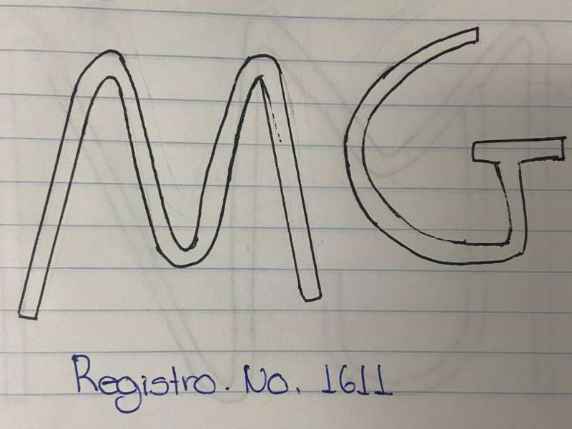 MG
Registro. No. 1611